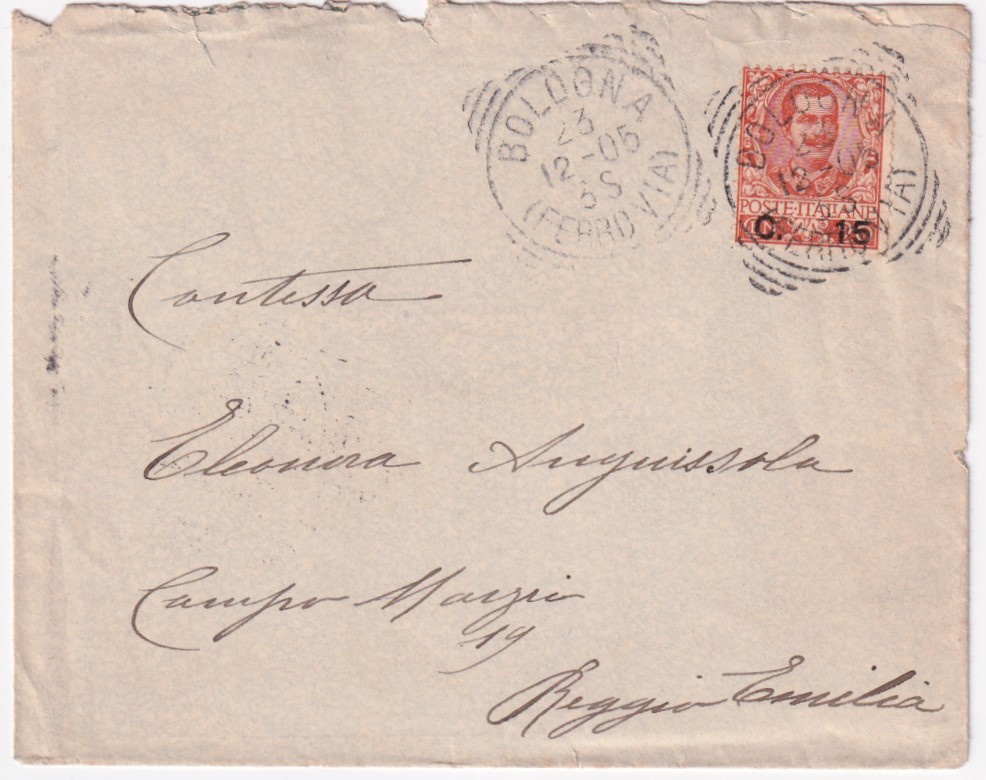 BOLOGNA
23
12-05
5S
(FERROVIA)
BOLOGNA
12-05
(FERROVIA)
POSTE·ITALIANE
C. 15
Contessa
Eleonora Anguissola
Campo Marzio
19
Reggio Emilia